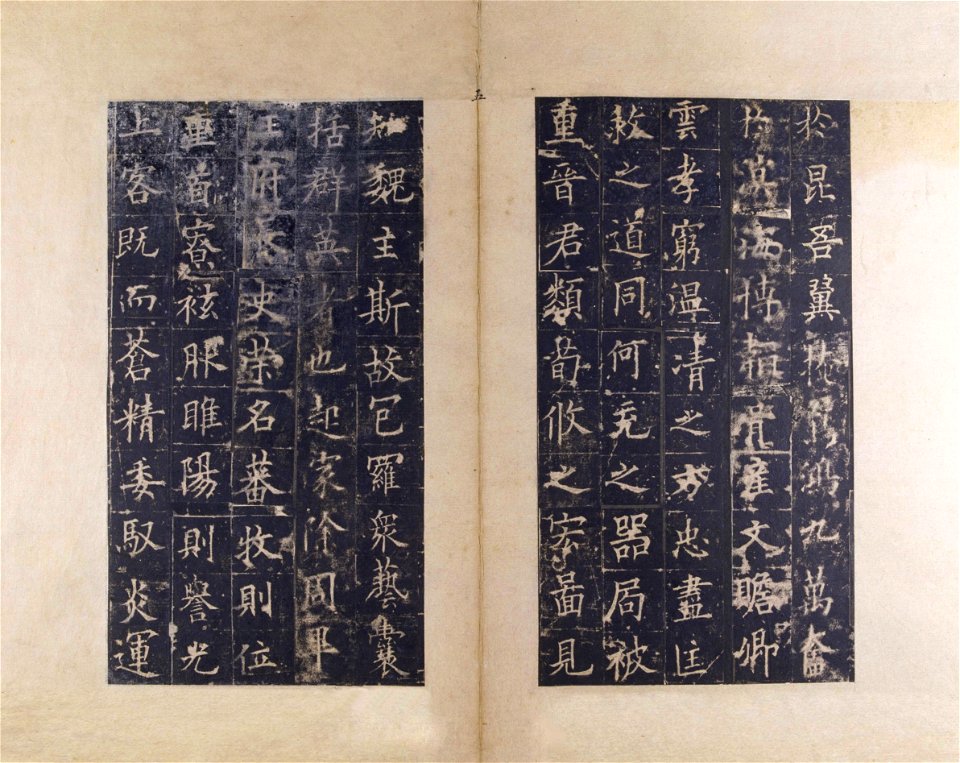 於昆吾翼掩鴻九萬奮
於溟海博韜胄產文贍卿
雲孝窮溫清之方忠盡匡
救之道同何充之器局被
重晉君類荀攸之宏圖見
知魏主斯故包羅衆藝囊
括群英者也起家除周畢
王府長史榮名蕃牧則位
重首寮袨服睢陽則譽光
上客既而蒼精委馭炎運
五